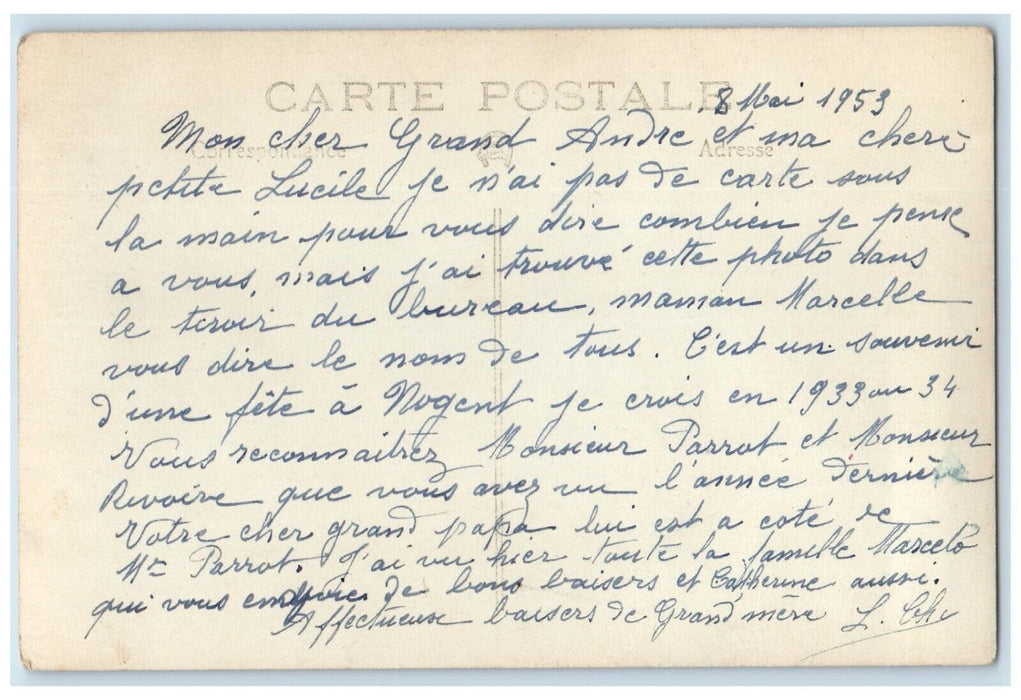 CARTE POSTALE
8 Mai 1953
Correspondance
Adresse
Mon chér Grand André et ma cherè
petite Lucile je n'ai pas de carte sous
la main pour vous dire combien je pense
a vous, mais j'ai trouvé cette photo dans
le tiroir du bureau, maman Marcelle
vous dire le nom de tous. C'est un souvenir
d'une fête à Nogent je crois en 1933 ou 34
Vous reconnaitrez Monsieur Parrot et Monsieur
Rivoire que vous avez vu l'année dernière
Votre cher grand papa lui est a coté de
Mr Parrot. J'ai vu hier toute la famille
qui vous envoie de bons baisers et Catherine aussi.
Affectueuse baisers de Grand mère L.